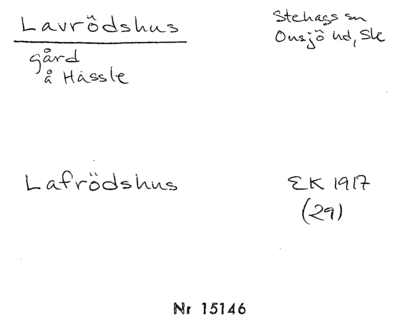 Lavrödshus
gård
å Hässle
Stehags sn
Onsjö hd, Sk
Lafrödshus
EK 1917
(29)
Nr 15146